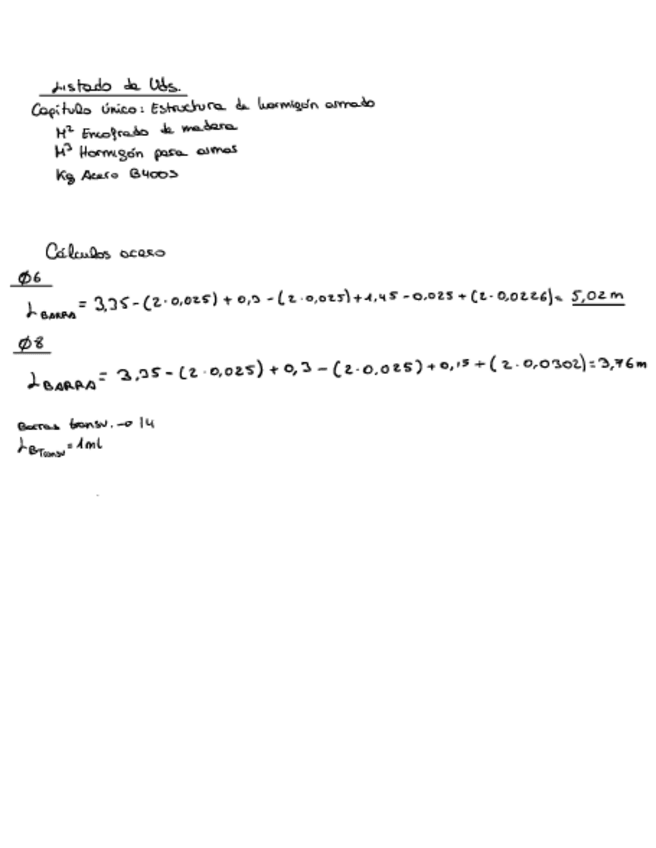 Listado de Uds.
Capítulo único: Estructura de hormigón armado
M² Encofrado de madera
M³ Hormigón para armar
Kg Acero B400S
Cálculos acero
Ø6
L BARRA = 3,35 - (2·0,025) + 0,3 - (2·0,025) + 1,45 - 0,025 + (2·0,0226) = 5,02 m
Ø8
L BARRA = 3,35 - (2·0,025) + 0,3 - (2·0,025) + 0,15 + (2·0,0302) = 3,76 m
Barras transv. → 14
L BTransv = 1ml